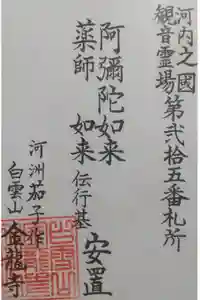 河内之國
観音霊場第弐拾五番札所
阿彌陀如来
薬師如来伝行基
安置
河洲茄子作
白雲山金龍寺